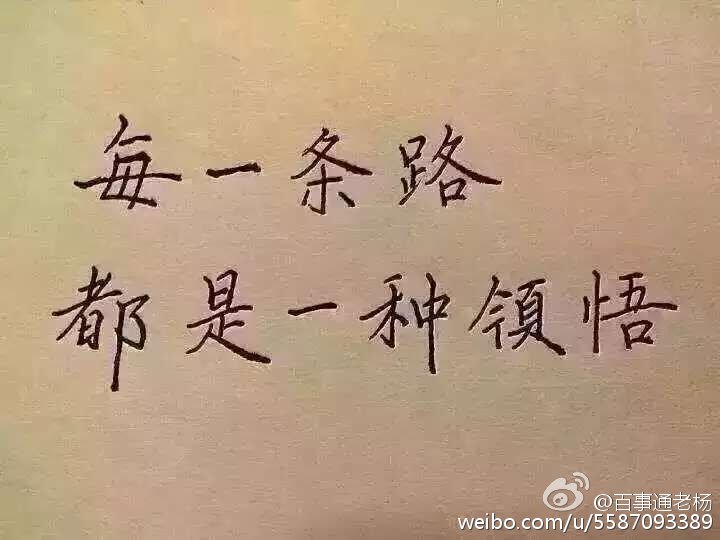 每一条路
都是一种领悟
@百事通老杨
weibo.com/u/5587093389